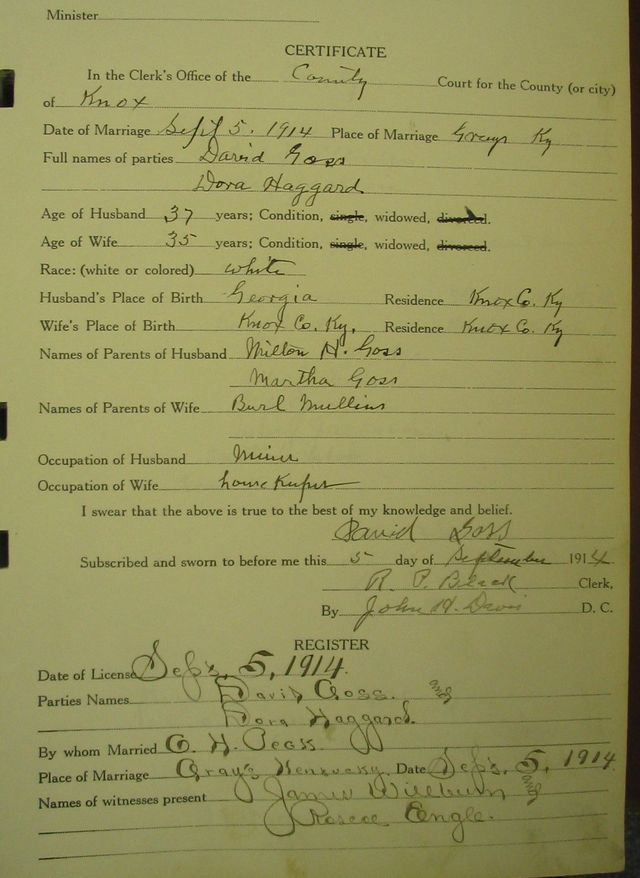 Minister
CERTIFICATE
In the Clerk's Office of the County Court for the County (or city)
of Knox
Date of Marriage Sept 5. 1914 Place of Marriage Grays Ky
Full names of parties David Goss
Dora Haggard
Age of Husband 37 years; Condition, single, widowed, divorced.
Age of Wife 35 years; Condition, single, widowed, divorced.
Race: (white or colored) white
Husband's Place of Birth Georgia Residence Knox Co. Ky
Wife's Place of Birth Knox Co. Ky. Residence Knox Co. Ky
Names of Parents of Husband Milton H. Goss
Martha Goss
Names of Parents of Wife Burl Mullins
Occupation of Husband Miner
Occupation of Wife house keeper
I swear that the above is true to the best of my knowledge and belief.
David Goss
Subscribed and sworn to before me this 5 day of September 1914
R. P. Black Clerk,
By John H. Davis D. C.
REGISTER
Date of License Sept. 5, 1914.
Parties Names David Goss. and
Dora Haggard.
By whom Married H.
Place of Marriage Gray's Kentucky Date Sept. 5, 1914
Names of witnesses present James Wilburn and
Roscoe Engle.